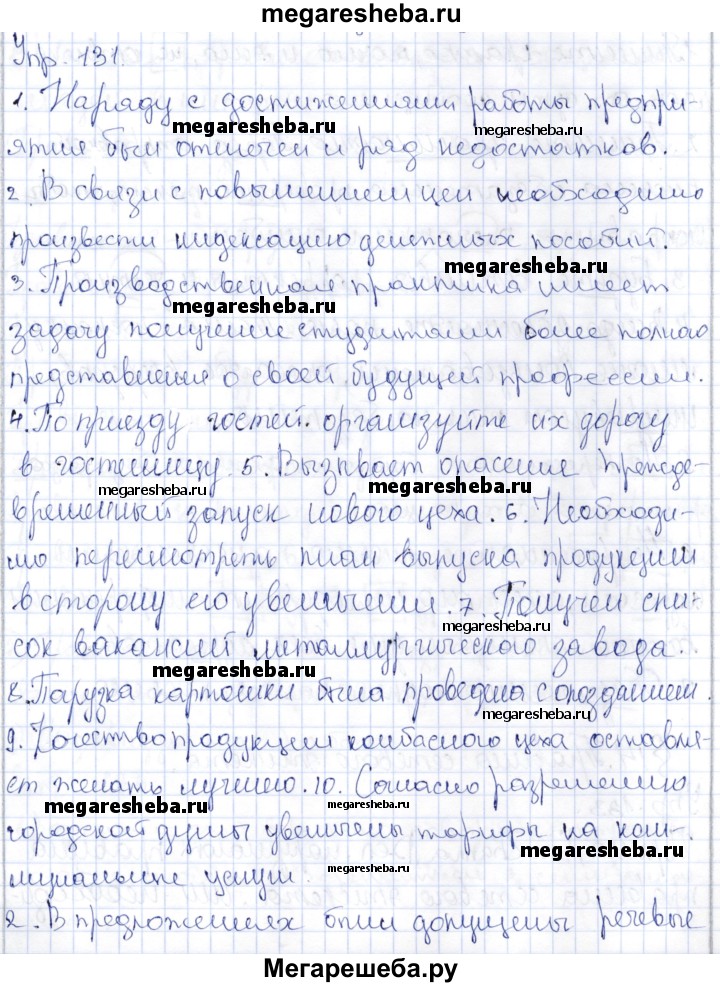 megaresheba.ru
Упр. 131.
1. Наряду с достижениями работы предпри-
megaresheba.ru
megaresheba.ru
ятия был отмечен и ряд недостатков.
2. В связи с повышением цен необходимо
произвести индексацию денежных пособий.
megaresheba.ru
3. Производственная практика имеет
megaresheba.ru
задачу получение студентами более полного
представления о своей будущей профессии.
4. По приезду гостей организуйте их дорогу
в гостиницу. 5. Вызывает опасение прежде-
megaresheba.ru
megaresheba.ru
временный запуск нового цеха. 6. Необходи-
мо пересмотреть план выпуска продукции
в сторону его увеличении. 7. Получен спи-
megaresheba.ru
сок вакансий металлургического завода.
megaresheba.ru
8. Погрузка картошки была проведена с опозданием.
megaresheba.ru
9. Качество продукции колбасного цеха оставля-
ет желать лучшего. 10. Согласно разрешению
megaresheba.ru
megaresheba.ru
городской думы увеличены тарифы на ком-
megaresheba.ru
мунальные услуги.
megaresheba.ru
2. В предложениях были допущены речевые
Мегарешеба.ру